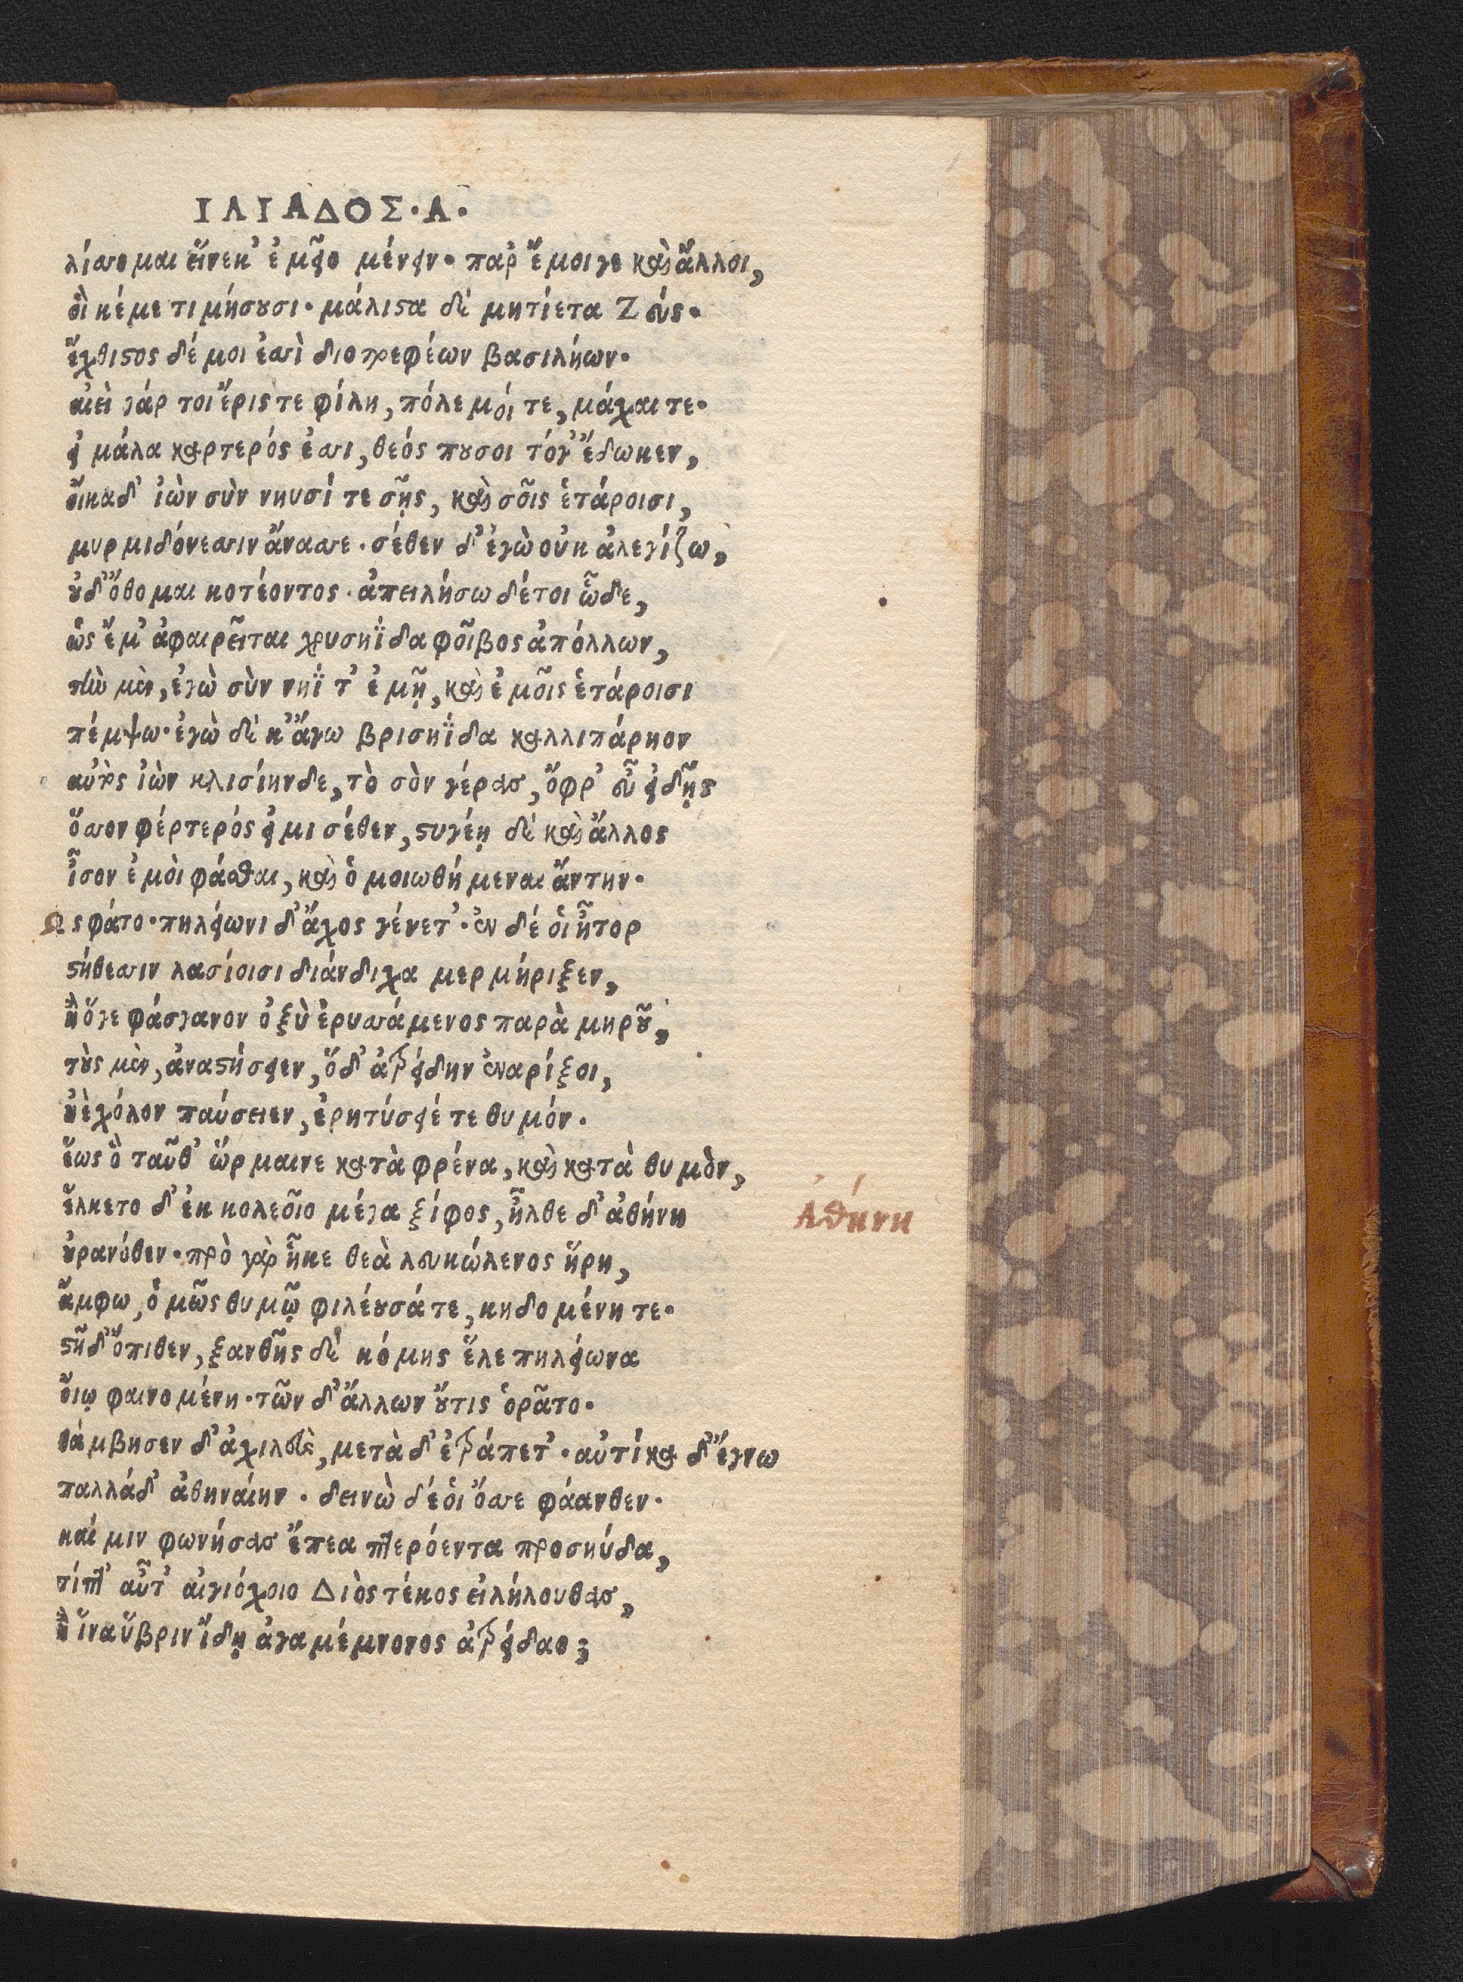 ΙΛΙΑΔΟΣ·Α·
λίσσομαι εἵνεκ' ἐμεῖο μένειν· παρ' ἔμοιγε καὶ ἄλλοι,
οἵ κέ με τιμήσουσι· μάλιστα δὲ μητίετα Ζεύς·
ἔχθιστος δέ μοι ἐσσὶ διοτρεφέων βασιλήων·
αἰεὶ γάρ τοι ἔρις τε φίλη, πόλεμοί τε, μάχαι τε·
εἰ μάλα καρτερός ἐσσι, θεός που σοι τόγ' ἔδωκεν,
οἴκαδ' ἰὼν σὺν νηυσί τε σῇς, καὶ σοῖς ἑτάροισι,
μυρμιδόνεσσιν ἄνασσε· σέθεν δ' ἐγὼ οὐκ ἀλεγίζω,
οὐδ' ὄθομαι κοτέοντος· ἀπειλήσω δέ τοι ὧδε,
ὡς ἔμ' ἀφαιρεῖται χρυσηΐδα φοῖβος ἀπόλλων,
τὴν μὲν, ἐγὼ σὺν νηΐ τ' ἐμῇ, καὶ ἐμοῖς ἑτάροισι
πέμψω· ἐγὼ δὲ κ' ἄγω βρισηΐδα καλλιπάρηον
αὐτὸς ἰὼν κλισίηνδε, τὸ σὸν γέρας, ὄφρ' εὖ εἰδῇς
ὅσσον φέρτερός εἰμι σέθεν, στυγέῃ δὲ καὶ ἄλλος
ἶσον ἐμοὶ φάσθαι, καὶ ὁμοιωθήμεναι ἄντην·
Ως φάτο· πηλείωνι δ' ἄχος γένετ'· ἐν δέ οἱ ἦτορ
στήθεσσιν λασίοισι διάνδιχα μερμήριξεν,
ἢ ὅγε φάσγανον ὀξὺ ἐρυσσάμενος παρὰ μηροῦ,
τοὺς μὲν, ἀναστήσειεν, ὅδ' ἀτρείδην ἐναρίξοι,
ἠὲ χόλον παύσειεν, ἐρητύσειέ τε θυμόν.
ἕως ὃ ταῦθ' ὥρμαινε κατὰ φρένα, καὶ κατὰ θυμὸν,
ἕλκετο δ' ἐκ κολεοῖο μέγα ξίφος, ἦλθε δ' ἀθήνη
οὐρανόθεν· πρὸ γὰρ ἧκε θεὰ λευκώλενος ἥρη,
ἄμφω, ὁμῶς θυμῷ φιλέουσά τε, κηδομένη τε·
στῆ δ' ὄπιθεν, ξανθῆς δὲ κόμης ἕλε πηλείωνα
οἴῳ φαινομένη· τῶν δ' ἄλλων οὔτις ὁρᾶτο·
θάμβησεν δ' ἀχιλεὺς, μετὰ δ' ἐτράπετ'· αὐτίκα δ' ἔγνω
παλλάδ' ἀθηναίην· δεινὼ δέ οἱ ὄσσε φάανθεν·
καί μιν φωνήσας ἔπεα πτερόεντα προσηύδα,
τίπτ' αὖτ' αἰγιόχοιο Διὸς τέκος εἰλήλουθας,
ἢ ἵνα ὕβριν ἴδῃ ἀγαμέμνονος ἀτρείδαο;
Ἀθήνη